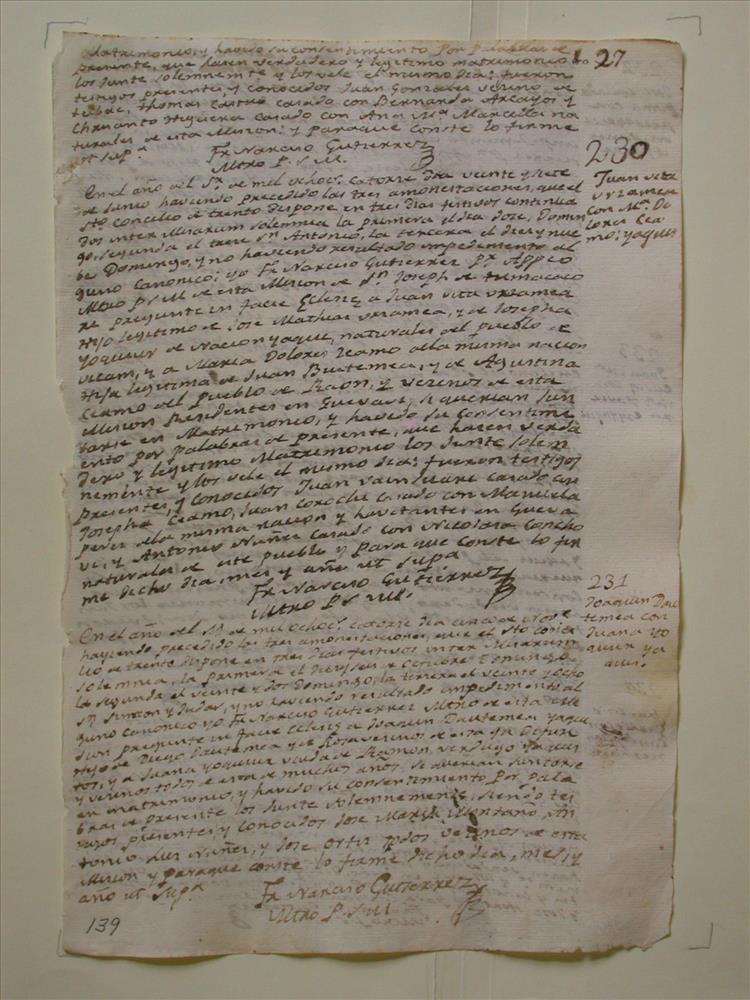 Matrimonio, y havido su consentimiento Por Palabras de
presente, que hasen verdadero y legitimo matrimonio
los Junte solemnemte y los vele el mismo dia; fueron
testigos presentes, y conocidos Juan Gonzales vesino de
tubac, Thomas Castro casado con Bernarda Arcayos y
Chrisanto Higuera casado con Ana Ma Marcella na
turales de esta Mision: y paraque conste lo firme
ut Supa
Fr Narciso Gutierrez
Mtro P. S. M.
127
230
Juan vita
vsiamea
con Ma Do
lores Cea
mo: yaquis
En el año del Sr de mil ochocs catorse dia veinte y siete
de Junio haviendo precedido las tres amonestaciones, que el
Sto Concilio de trento dispone en tres dias festivos continua
dos inter Misarum solemnia la primera el dia dose, Domin
go, segunda el trese Sn Antonio, la tersera el dies y nue
be Domingo, y no haviendo resultado impedimento al
guno canonico; yo Fr Narciso Gutierrez Pr Appco
Mtro P. S. M. de esta Mision de Sn Joseph de tumacaco
ri pregunte in facie Eclesie a Juan vita vsiamea
Hijo legitimo de Jose Mathias vsiamea, y de Josepha
yoquivis de Nacion yaqui, naturales del pueblo de
vicam, y a Maria Dolores Ceamo de la misma nacion
Hija legitima de Juan Buitemea, y de Agustina
Ceamo del pueblo de Raon, y vesinos de esta
Mision Residentes en Guevavi, si querian Jun
tarse en Matrimonio, y havido su Consentimi
ento por palabras de presente, que hasen verda
dero y legitimo Matrimonio los Junte solem
nemente y los vele el mismo dia: fueron testigos
presentes, y conocidos Juan casado con
Josepha Ceamo, Juan Corochi casado con Manuela
Peres de la misma nacion y havitantes en Gueva
vi, y Antonio Nuñes casado con Nicolasa Concho
naturales de este pueblo y Para que conste lo fir
me dicho dia, mes y año ut supa
Fr Narciso Gutierrez
Mtro P. S. M.
231
Joaquin Dau
temea con
Juana yo
quivis ya
quis.
En el año del Sr de mil ochocs catorse dia cinco de
haviendo precedido las tres amonestaciones, que el Sto Conci
lio de trento dispone en tres dias festivos inter Misarum
solemnia, la primera el dies y seis de Octubre Domingo,
la segunda el veinte y dos Domingo, la tersera el veinte y ocho
Sn Simeon y Judas, y no haviendo resultado impedimento al
guno canonico yo Fr Narciso Gutierrez Mtro de esta Mi
sion pregunte in facie Eclesie a Joaquin Dautemea yaqui
Hijo de Diego Dautemea y de Rosa vesinos de esta ya Defun
tos, y a Juana yoquivis viuda de Ramon verdugo yaquis
y vesinos todos de esta de muchos años, si querian Juntarse
en matrimonio, y havido su consentimiento Por Pala
bras de presente los Junte solemnemente, siendo tes
tigos presentes, y conocidos Jose Maria Montaño, An
tonio Luis Nuñes, y Jose Ortis todos vesinos de esta
Mision y paraque conste lo firme dicho dia, mes, y
año ut Supa
Fr Narciso Gutierrez
Mtro P. S. M.
139